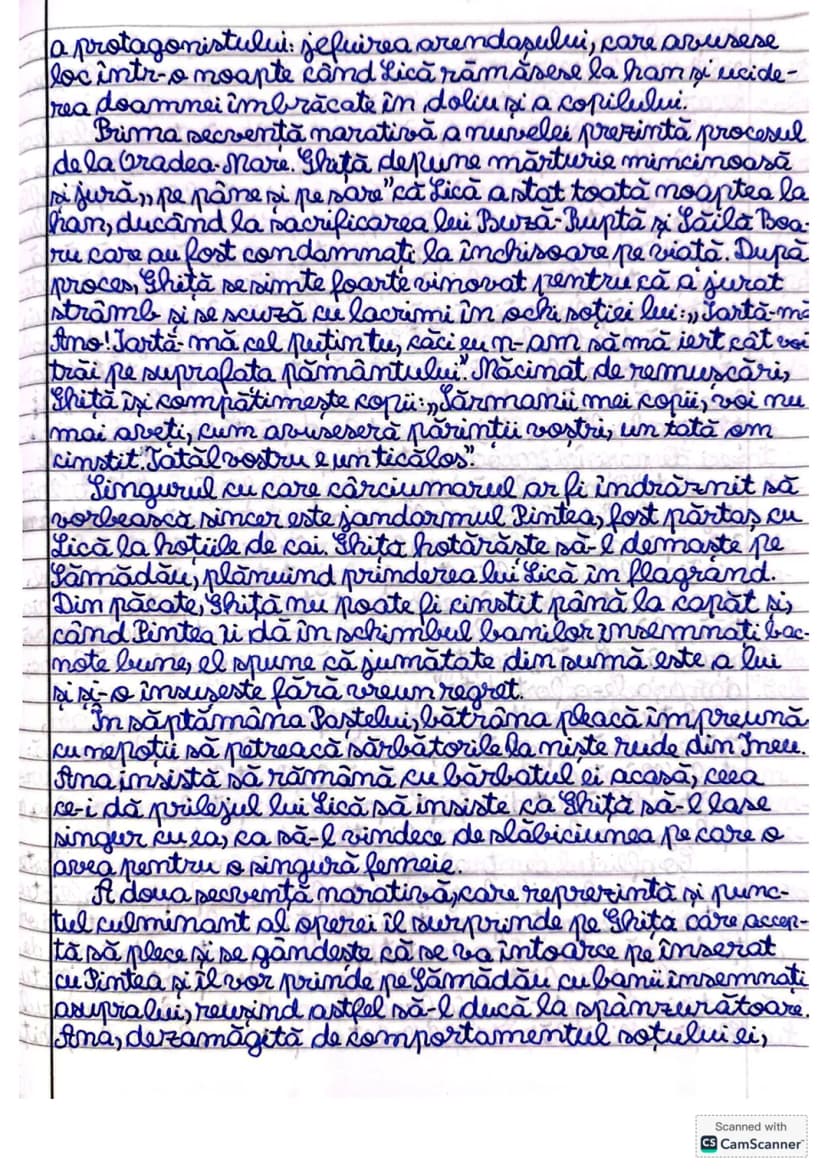 a protagonistului: jefuirea arendașului, care avusese
loc într-o noapte când Lică rămăsese la han și ucide-
rea doamnei îmbrăcate în doliu și a copilului.
Prima secvență narativă a nuvelei prezintă procesul
de la Oradea-Mare. Ghiță depune mărturie mincinoasă
și jură „pe pâne și pe sare" că Lică a stat toată noaptea la
han, ducând la sacrificarea lui Buză-Ruptă și Săilă Boa-
ru care au fost condamnați la închisoare pe viată. După
proces, Ghiță se simte foarte vinovat pentru că a jurat
strâmb și se scuză cu lacrimi în ochi soției lui: „Iartă-mă
Ano! Iartă-mă cel puțin tu, căci eu n-am să mă iert cât voi
trăi pe suprafata pământului". Măcinat de remuscări,
Ghiță își compătimește copii: „Sărmanii mei copii, voi nu
mai aveți, cum avuseseră părinții voștri, un tată om
cinstit. Tatăl vostru e un ticălos".
Singurul cu care cârciumarul ar fi îndrăznit să
vorbească sincer este jandarmul Pintea, fost părtaș cu
Lică la hoțiile de cai. Ghiță hotărăște să-l demaște pe
Sămădău, plănuind prinderea lui Lică în flagrand.
Din păcate, Ghiță nu poate fi cinstit până la capăt și,
când Pintea îi dă în schimbul banilor însemnati bac-
note bune, el spune că jumătate din sumă este a lui
și și-o însușește fără vreun regret.
În săptămâna Paștelui, bătrâna pleacă împreună
cu nepoții să petreacă sărbătorile la niște rude din Ineu.
Ana insistă să rămână cu bărbatul ei acasă, ceea
ce-i dă prilejul lui Lică să insiste ca Ghiță să-l lase
singur cu ea, ca să-l vindece de slăbiciunea pe care o
avea pentru o singură femeie.
A doua secvență narativă, care reprezintă și punc-
tul culminant al operei îl surprinde pe Ghiță care accep-
tă să plece și se gândește că se va întoarce pe înserat
cu Pintea și îl vor prinde pe Sămădău cu banii însemnați
asupra lui, reușind astfel să-l ducă la spânzurătoare.
Ana, dezamăgită de comportamentul soțului ei,
Scanned with
CS CamScanner